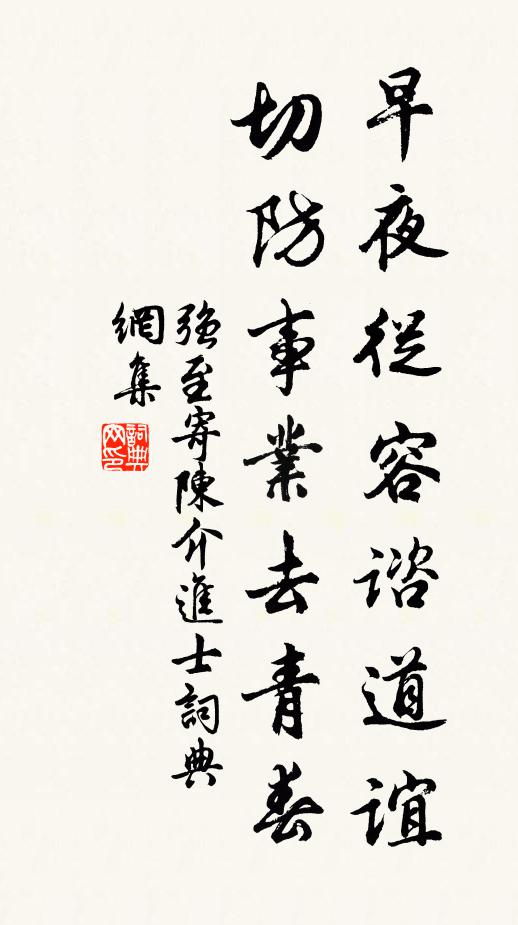 早夜從容諮道誼
切防事業去青春
強至寄陳介進士詞典
網集
詞典網印